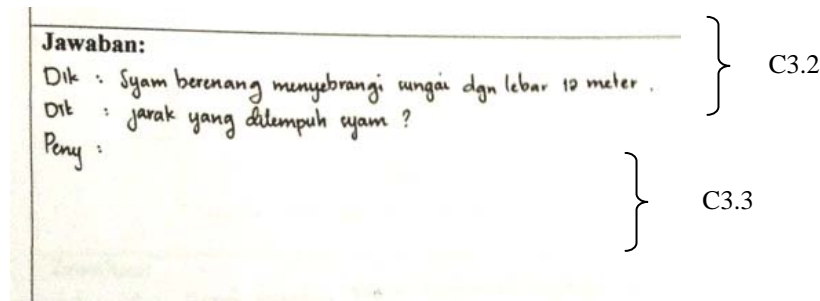 Jawaban:
Dik : Syam berenang menyebrangi sungai dgn lebar 12 meter.
C3.2
Dit : jarak yang ditempuh syam ?
Peny :
C3.3